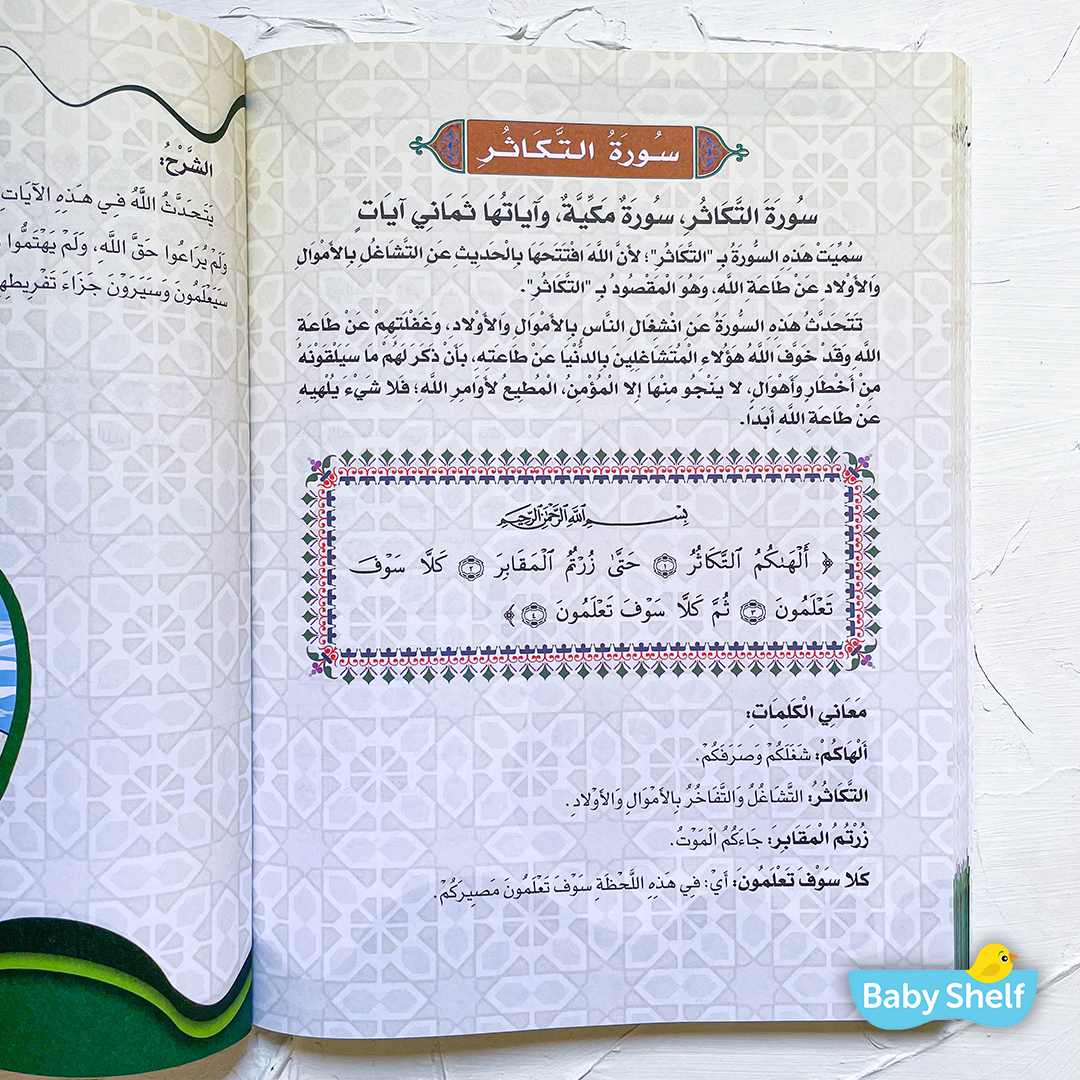 سُورَةُ التَّكَاثُرِ
سُورَةَ التَّكَاثُرِ، سُورَةٌ مَكِّيَّةٌ، وَآيَاتُهَا ثَمَانِي آيَاتٍ
سُمِّيَتْ هَذِهِ السُّورَةُ بِـ "التَّكَاثُرِ"؛ لأَنَّ اللَّهَ افْتَتَحَهَا بِالْحَدِيثِ عَنِ التَّشَاغُلِ بِالأَمْوَالِ
وَالأَوْلَادِ عَنْ طَاعَةِ اللَّهِ، وَهُوَ الْمَقْصُودُ بِـ "التَّكَاثُرِ".
تَتَحَدَّثُ هَذِهِ السُّورَةُ عَنِ انْشِغَالِ النَّاسِ بِالأَمْوَالِ وَالأَوْلَادِ، وَغَفْلَتِهِمْ عَنْ طَاعَةِ
اللَّهِ وَقَدْ خَوَّفَ اللَّهُ هَؤُلَاءِ الْمُتَشَاغِلِينَ بِالدُّنْيَا عَنْ طَاعَتِهِ، بِأَنْ ذَكَرَ لَهُمْ مَا سَيَلْقَوْنَهُ
مِنْ أَخْطَارٍ وَأَهْوَالٍ، لا يَنْجُو مِنْهَا إِلا الْمُؤْمِنُ، الْمُطِيعُ لأَوَامِرِ اللَّهِ؛ فَلا شَيْءَ يُلْهِيهِ
عَنْ طَاعَةِ اللَّهِ أَبَدًا.
بِسْمِ اللَّهِ الرَّحْمَٰنِ الرَّحِيمِ
﴿ أَلْهَىٰكُمُ ٱلتَّكَاثُرُ ۝١ حَتَّىٰ زُرْتُمُ ٱلْمَقَابِرَ ۝٢ كَلَّا سَوْفَ
تَعْلَمُونَ ۝٣ ثُمَّ كَلَّا سَوْفَ تَعْلَمُونَ ۝٤ ﴾
مَعَانِي الْكَلِمَاتِ:
أَلْهَاكُمْ: شَغَلَكُمْ وَصَرَفَكُمْ.
التَّكَاثُرُ: التَّشَاغُلُ وَالتَّفَاخُرُ بِالأَمْوَالِ وَالأَوْلَادِ.
زُرْتُمُ الْمَقَابِرَ: جَاءَكُمُ الْمَوْتُ.
كَلا سَوْفَ تَعْلَمُونَ: أَيْ: فِي هَذِهِ اللَّحْظَةِ سَوْفَ تَعْلَمُونَ مَصِيرَكُمْ.
الشَّرْحُ:
يَتَحَدَّثُ اللَّهُ فِي هَذِهِ الآيَاتِ
وَلَمْ يُرَاعُوا حَقَّ اللَّهِ، وَلَمْ يَهْتَمُّوا
سَيَعْلَمُونَ وَسَيَرَوْنَ جَزَاءَ
Baby Shelf